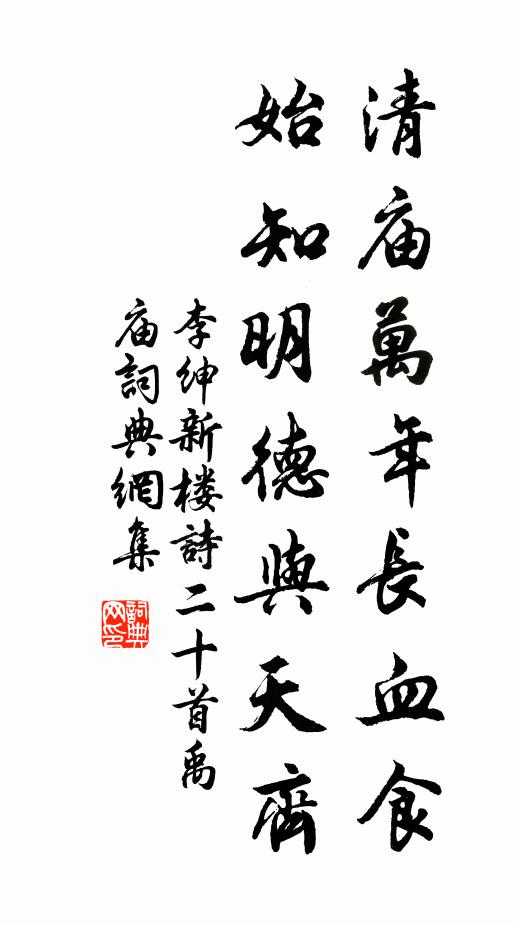 清庙萬年長血食
始知明德與天齊
李紳新楼詩二十首禹
庙詞典網集
詞典网印